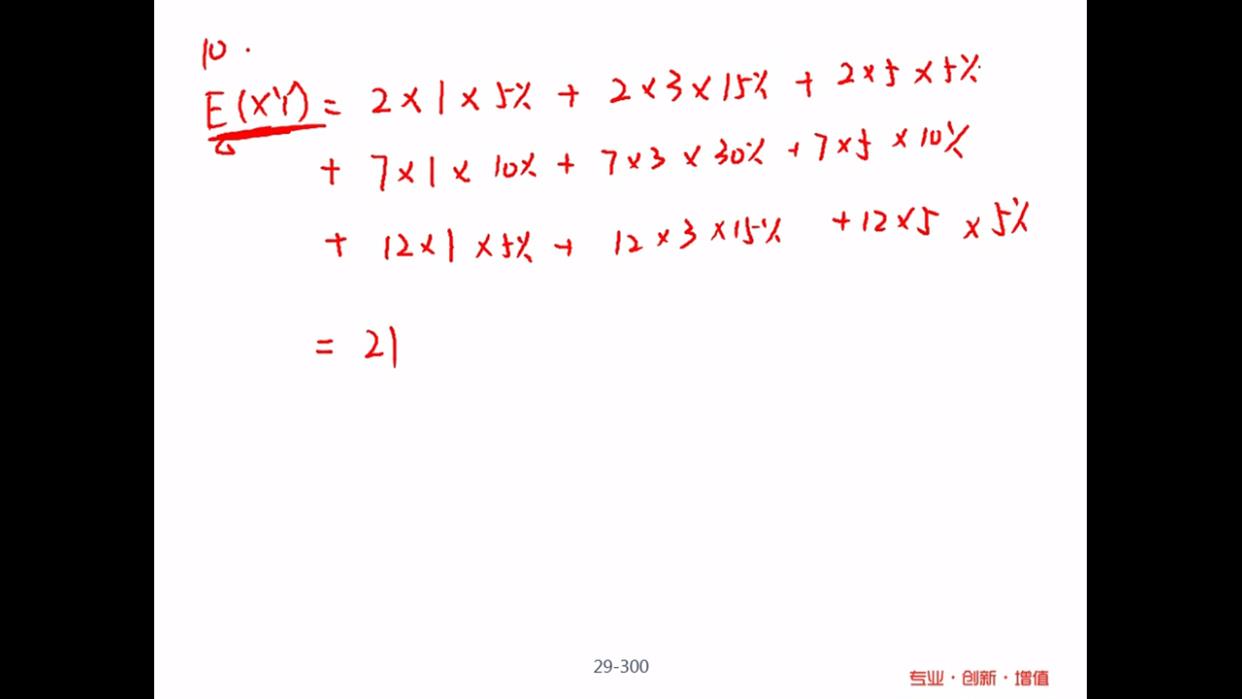 10.
E(XY) = 2 × 1 × 5% + 2 × 3 × 15% + 2 × 5 × 5%
+ 7 × 1 × 10% + 7 × 3 × 30% + 7 × 5 × 10%
+ 12 × 1 × 5% + 12 × 3 × 15% + 12 × 5 × 5%
= 21
29-300
专业·创新·增值